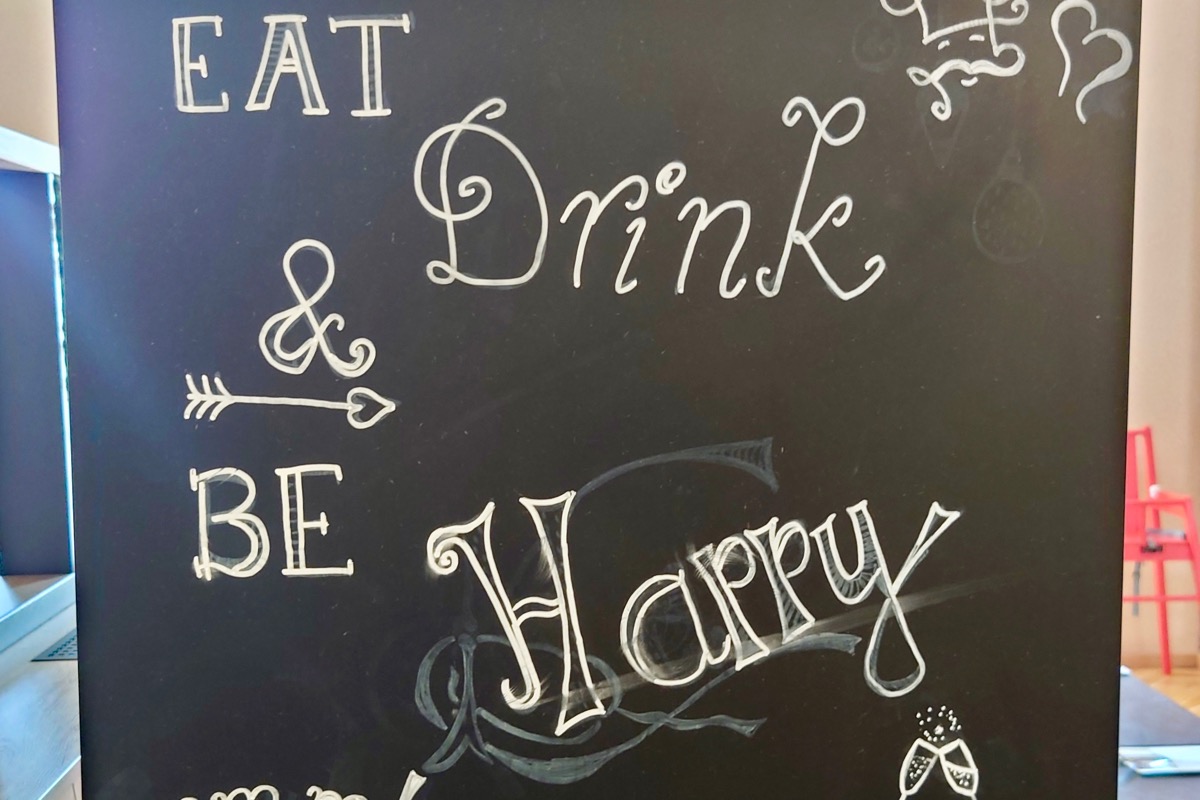 EAT
Drink
&
BE
Happy